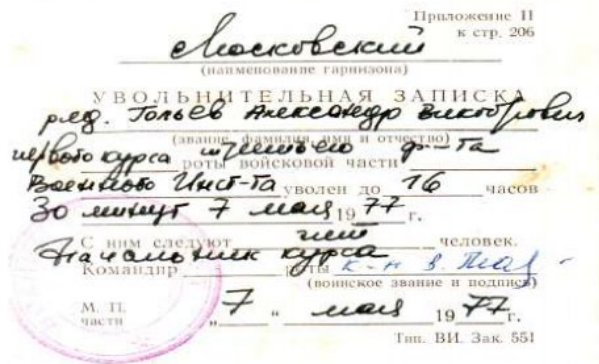 Приложение 11
к стр. 206
Московский
(наименование гарнизона)
УВОЛЬНИТЕЛЬНАЯ ЗАПИСКА
ряд. Гольев Александр Викторович
(звание, фамилия, имя и отчество)
первого курса третьего ф-та
роты войсковой части
Военного Инст-та уволен до 16 часов
30 минут 7 мая 1977 г.
С ним следуют человек.
Начальник курса
Командир роты к-н
(воинское звание и подпись)
М. П.
части
"7" мая 1977 г.
Тип. ВИ. Зак. 551